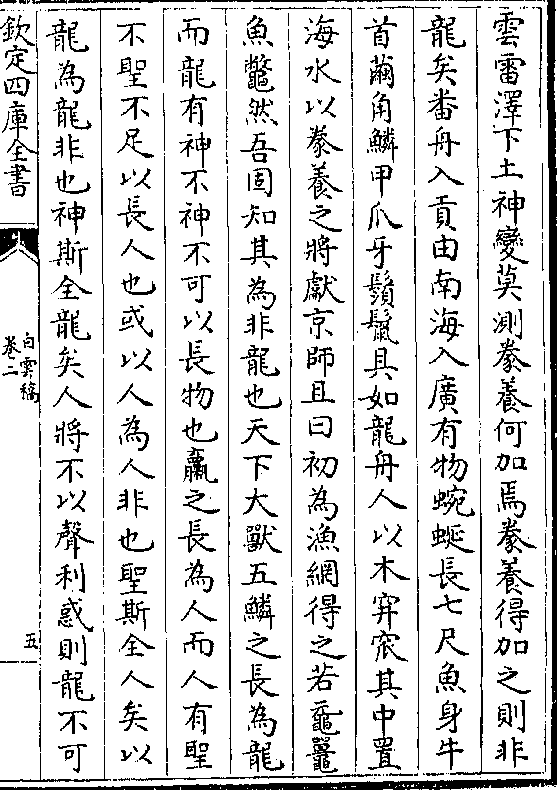 雲雷澤下土神變莫測豢養何加焉豢養得加之則非
龍矣番舟入貢由南海入廣有物蜿蜒長七尺魚身牛
首繭角鱗甲爪牙鬚鬣具如龍舟人以木穽窾其中置
海水以豢養之將獻京師且曰初為漁網得之若黿鼉
魚鼈然吾固知其為非龍也天下大獸五鱗之長為龍
而龍有神不神不可以長物也臝之長為人而人有聖
不聖不足以長人也或以人為人非也聖斯全人矣以
龍為龍非也神斯全龍矣人將不以聲利惑則龍不可
欽定四庫全書
白雲稿
卷二
五